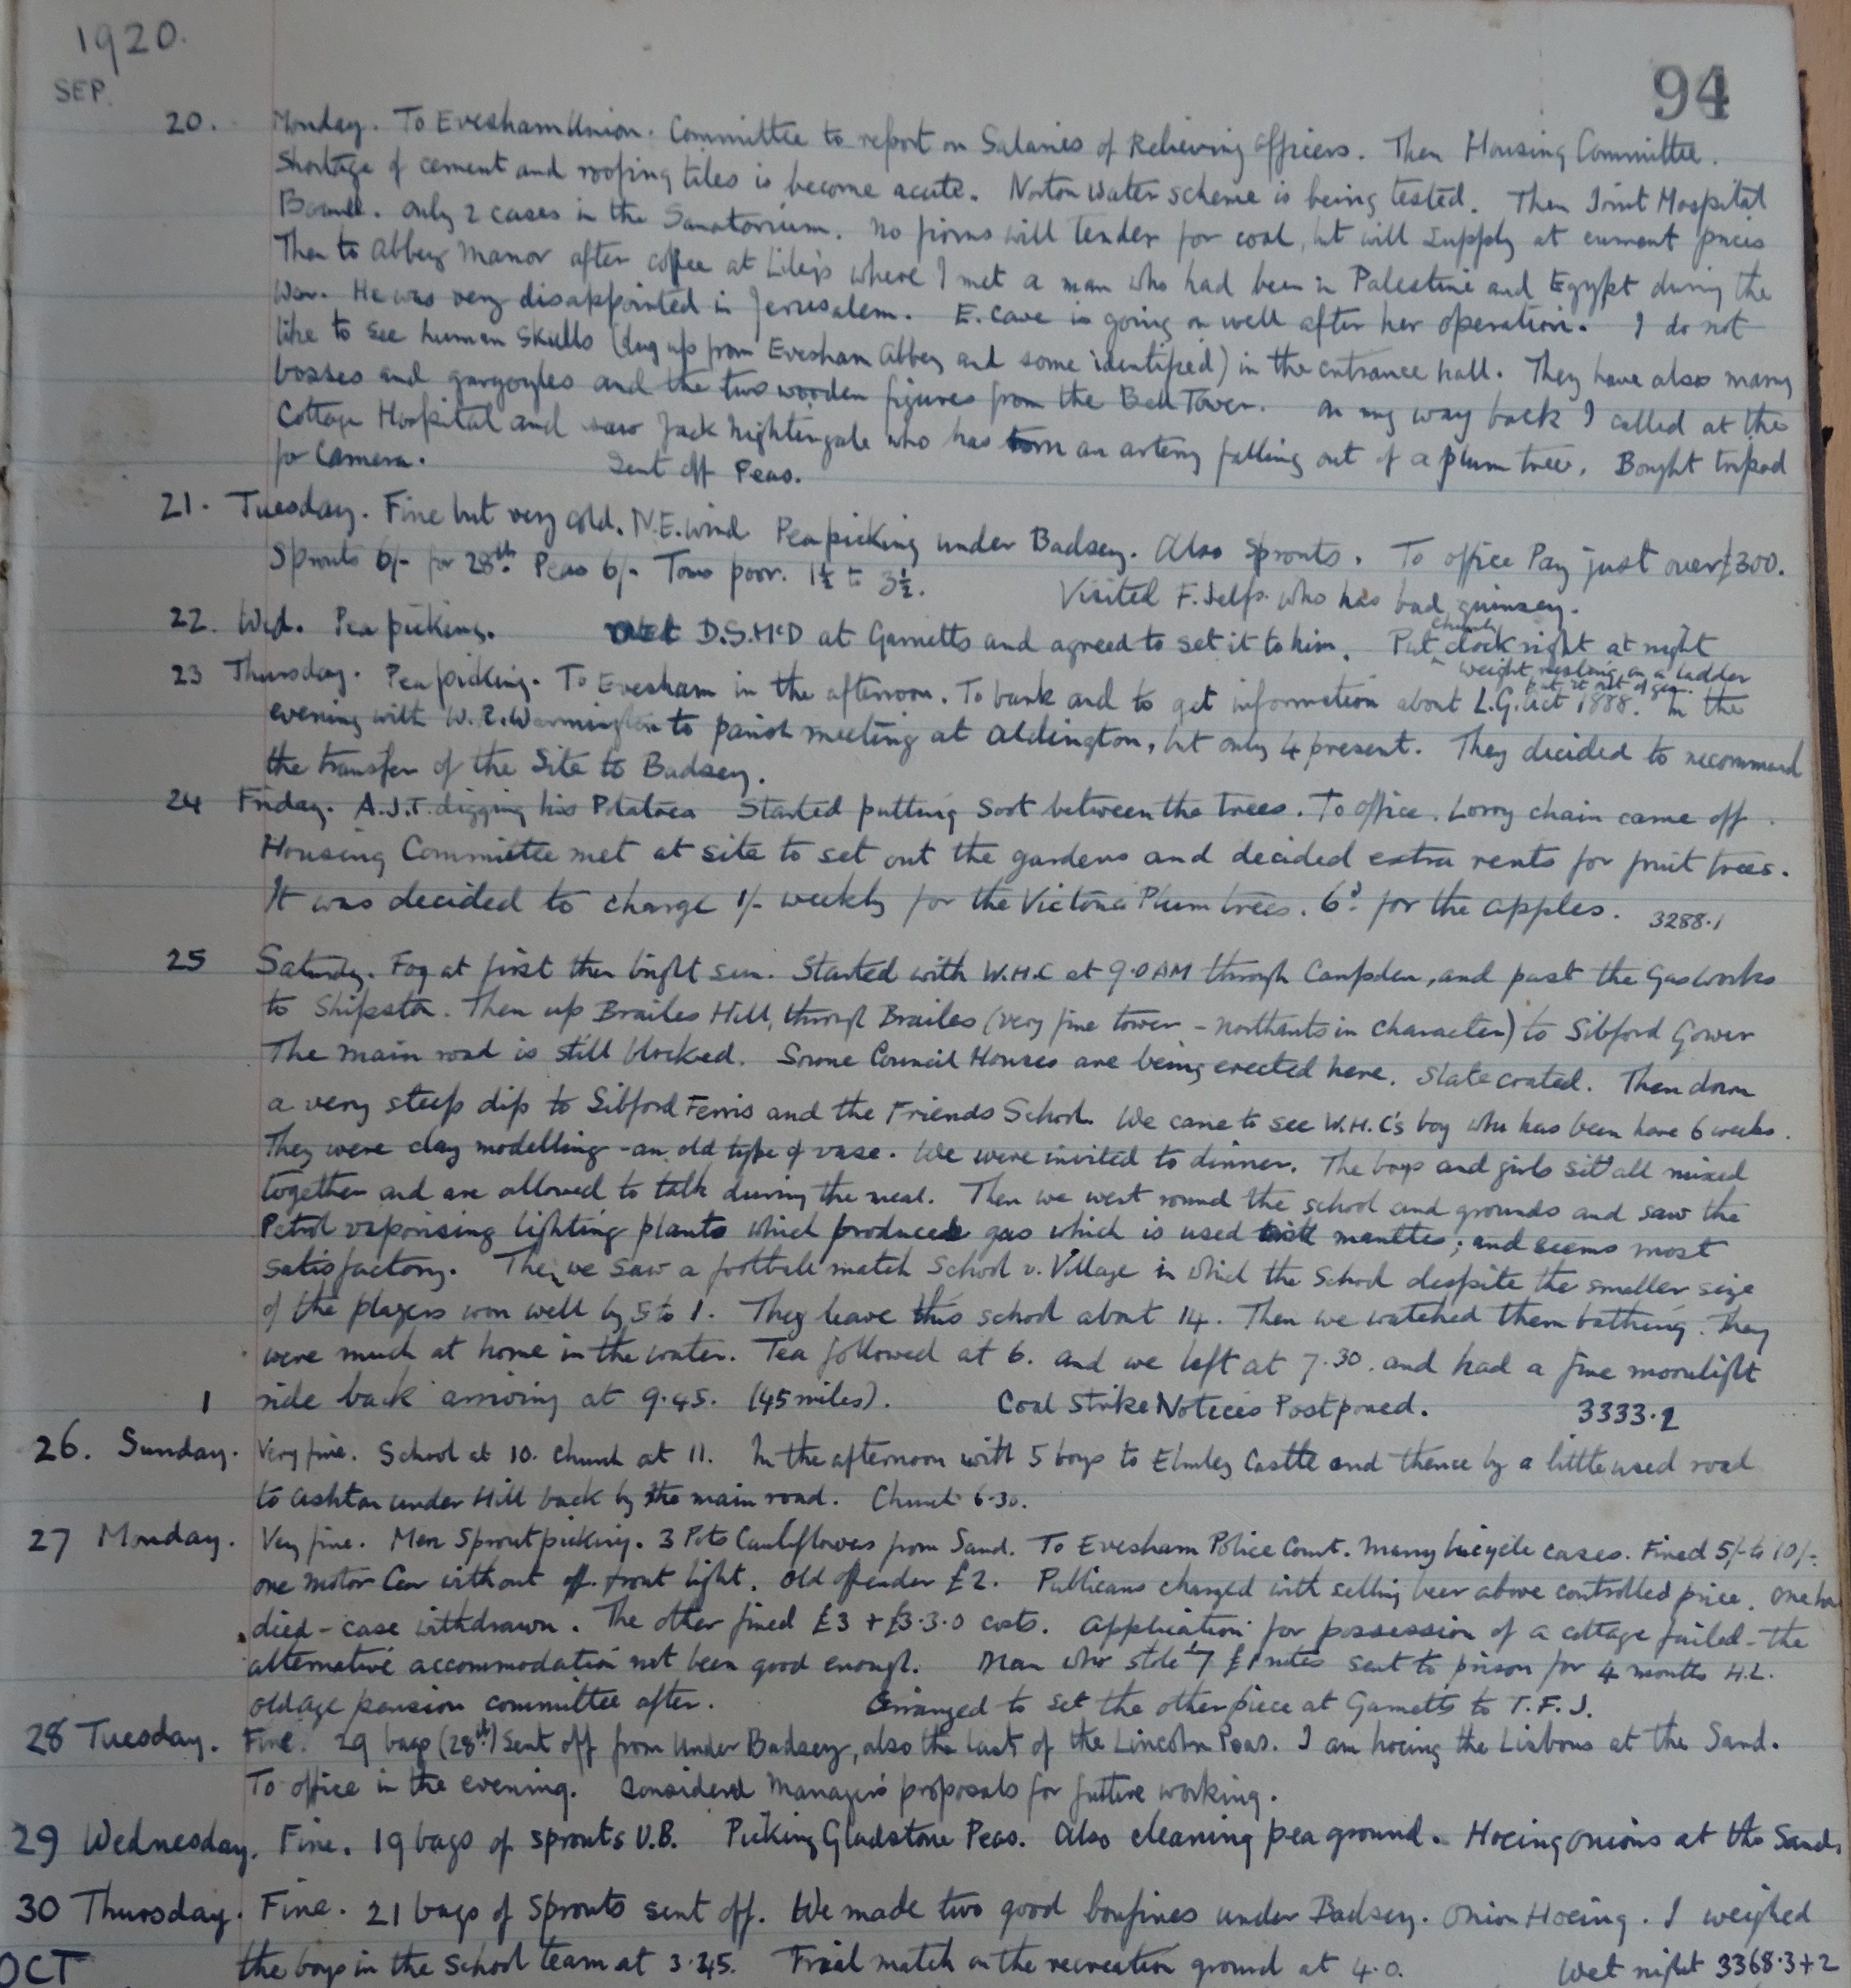 1920.
94
SEP.
20. Monday. To Evesham Union. Committee to report on Salaries of Relieving Officers. Then Housing Committee.
Shortage of cement and roofing tiles is become acute. Norton Water scheme is being tested. Then Joint Hospital
Board. Only 2 cases in the Sanatorium. No firms will tender for coal, but will supply at current prices
Then to Abbey Manor after coffee at Liley's where I met a man who had been in Palestine and Egypt during the
War. He was very disappointed in Jerusalem. E. Cave is going on well after her operation. I do not
like to see human skulls (dug up from Evesham Abbey and some identified) in the entrance hall. They have also many
bosses and gargoyles and the two wooden figures from the Bell Tower. On my way back I called at the
Cottage Hospital and saw Jack Nightingale who has torn an artery falling out of a plum tree. Bought tripod
for Camera. Sent off Peas.
21. Tuesday. Fine but very cold. N.E. wind Pea picking under Badsey. Also Sprouts. To office Pay just over £300.
Sprouts 6/- for 28th. Peas 6/- Toms poor. 1½ to 3½. Visited F. Jelfs who has bad quinsey.
22. Wed. Pea picking. Met D.S.McD at Garnetts and agreed to set it to him. Put church clock right at night
weight resting on a ladder
put it out of gear.
23 Thursday. Pea picking. To Evesham in the afternoon. To bank and to get information about L.G. Act 1888. In the
evening with W.E. Warmington to parish meeting at Aldington, but only 4 present. They decided to recommend
the transfer of the Site to Badsey.
24 Friday. A.J.T. digging his Potatoes Started putting Soot between the trees. To office. Lorry chain came off.
Housing Committee met at site to set out the gardens and decided extra rents for fruit trees.
It was decided to charge 1/- weekly for the Victoria Plum trees. 6d. for the apples. 3288.1
25 Saturday. Fog at first then bright sun. Started with W.H.C at 9.0 AM through Campden, and past the Gasworks
to Shipston. Then up Brailes Hill, through Brailes (very fine tower - Northants in character) to Sibford Gower
The main road is still blocked. Some Council Houses are being erected here. Slate coated. Then down
a very steep dip to Sibford Ferris and the Friends School. We came to see W.H.C's boy who has been here 6 weeks.
They were clay modelling - an old type of vase. We were invited to dinner. The boys and girls sit all mixed
together and are allowed to talk during the meal. Then we went round the school and grounds and saw the
Petrol vaporising lighting plants which produces gas which is used with mantles; and seems most
satisfactory. Then we saw a football match School v. Village in which the School despite the smaller size
of the players won well by 5 to 1. They leave this school about 14. Then we watched them bathing. They
were much at home in the water. Tea followed at 6. and we left at 7.30. and had a fine moonlight
1 ride back arriving at 9.45. (45 miles). Coal Strike Notices Postponed. 3333.2
26. Sunday. Very fine. School at 10. Church at 11. In the afternoon with 5 boys to Elmley Castle and thence by a little used road
to Ashton under Hill back by the main road. Church 6.30.
27 Monday. Very fine. Men Sprout picking. 3 Pots Cauliflowers from Sand. To Evesham Police Court. Many bicycle cases. Fined 5/- to 10/-.
One motor Car without off front light. Old offender £2. Publicans charged with selling beer above controlled price. One had
died - case withdrawn. The other fined £3 + £3.3.0 costs. Application for possession of a cottage failed - the
alternative accommodation not been good enough. Man who stole 7 £1 notes sent to prison for 4 months H.L.
Old age pension committee after. Arranged to set the other piece at Garnetts to T.F.J.
28 Tuesday. Fine. 29 bags (28th) Sent off from Under Badsey, also the last of the Lincoln Peas. I am hoeing the Lisbons at the Sand.
To office in the evening. Considered Manager's proposals for future working.
29 Wednesday. Fine. 19 bags of sprouts U.B. Picking Gladstone Peas. Also cleaning pea ground. Hoeing onions at the Sands
30 Thursday. Fine. 21 bags of Sprouts sent off. We made two good bonfires under Badsey. Onion Hoeing. I weighed
the boys in the School team at 3.45. Trial match on the recreation ground at 4.0. Wet night 3368.3+2
OCT